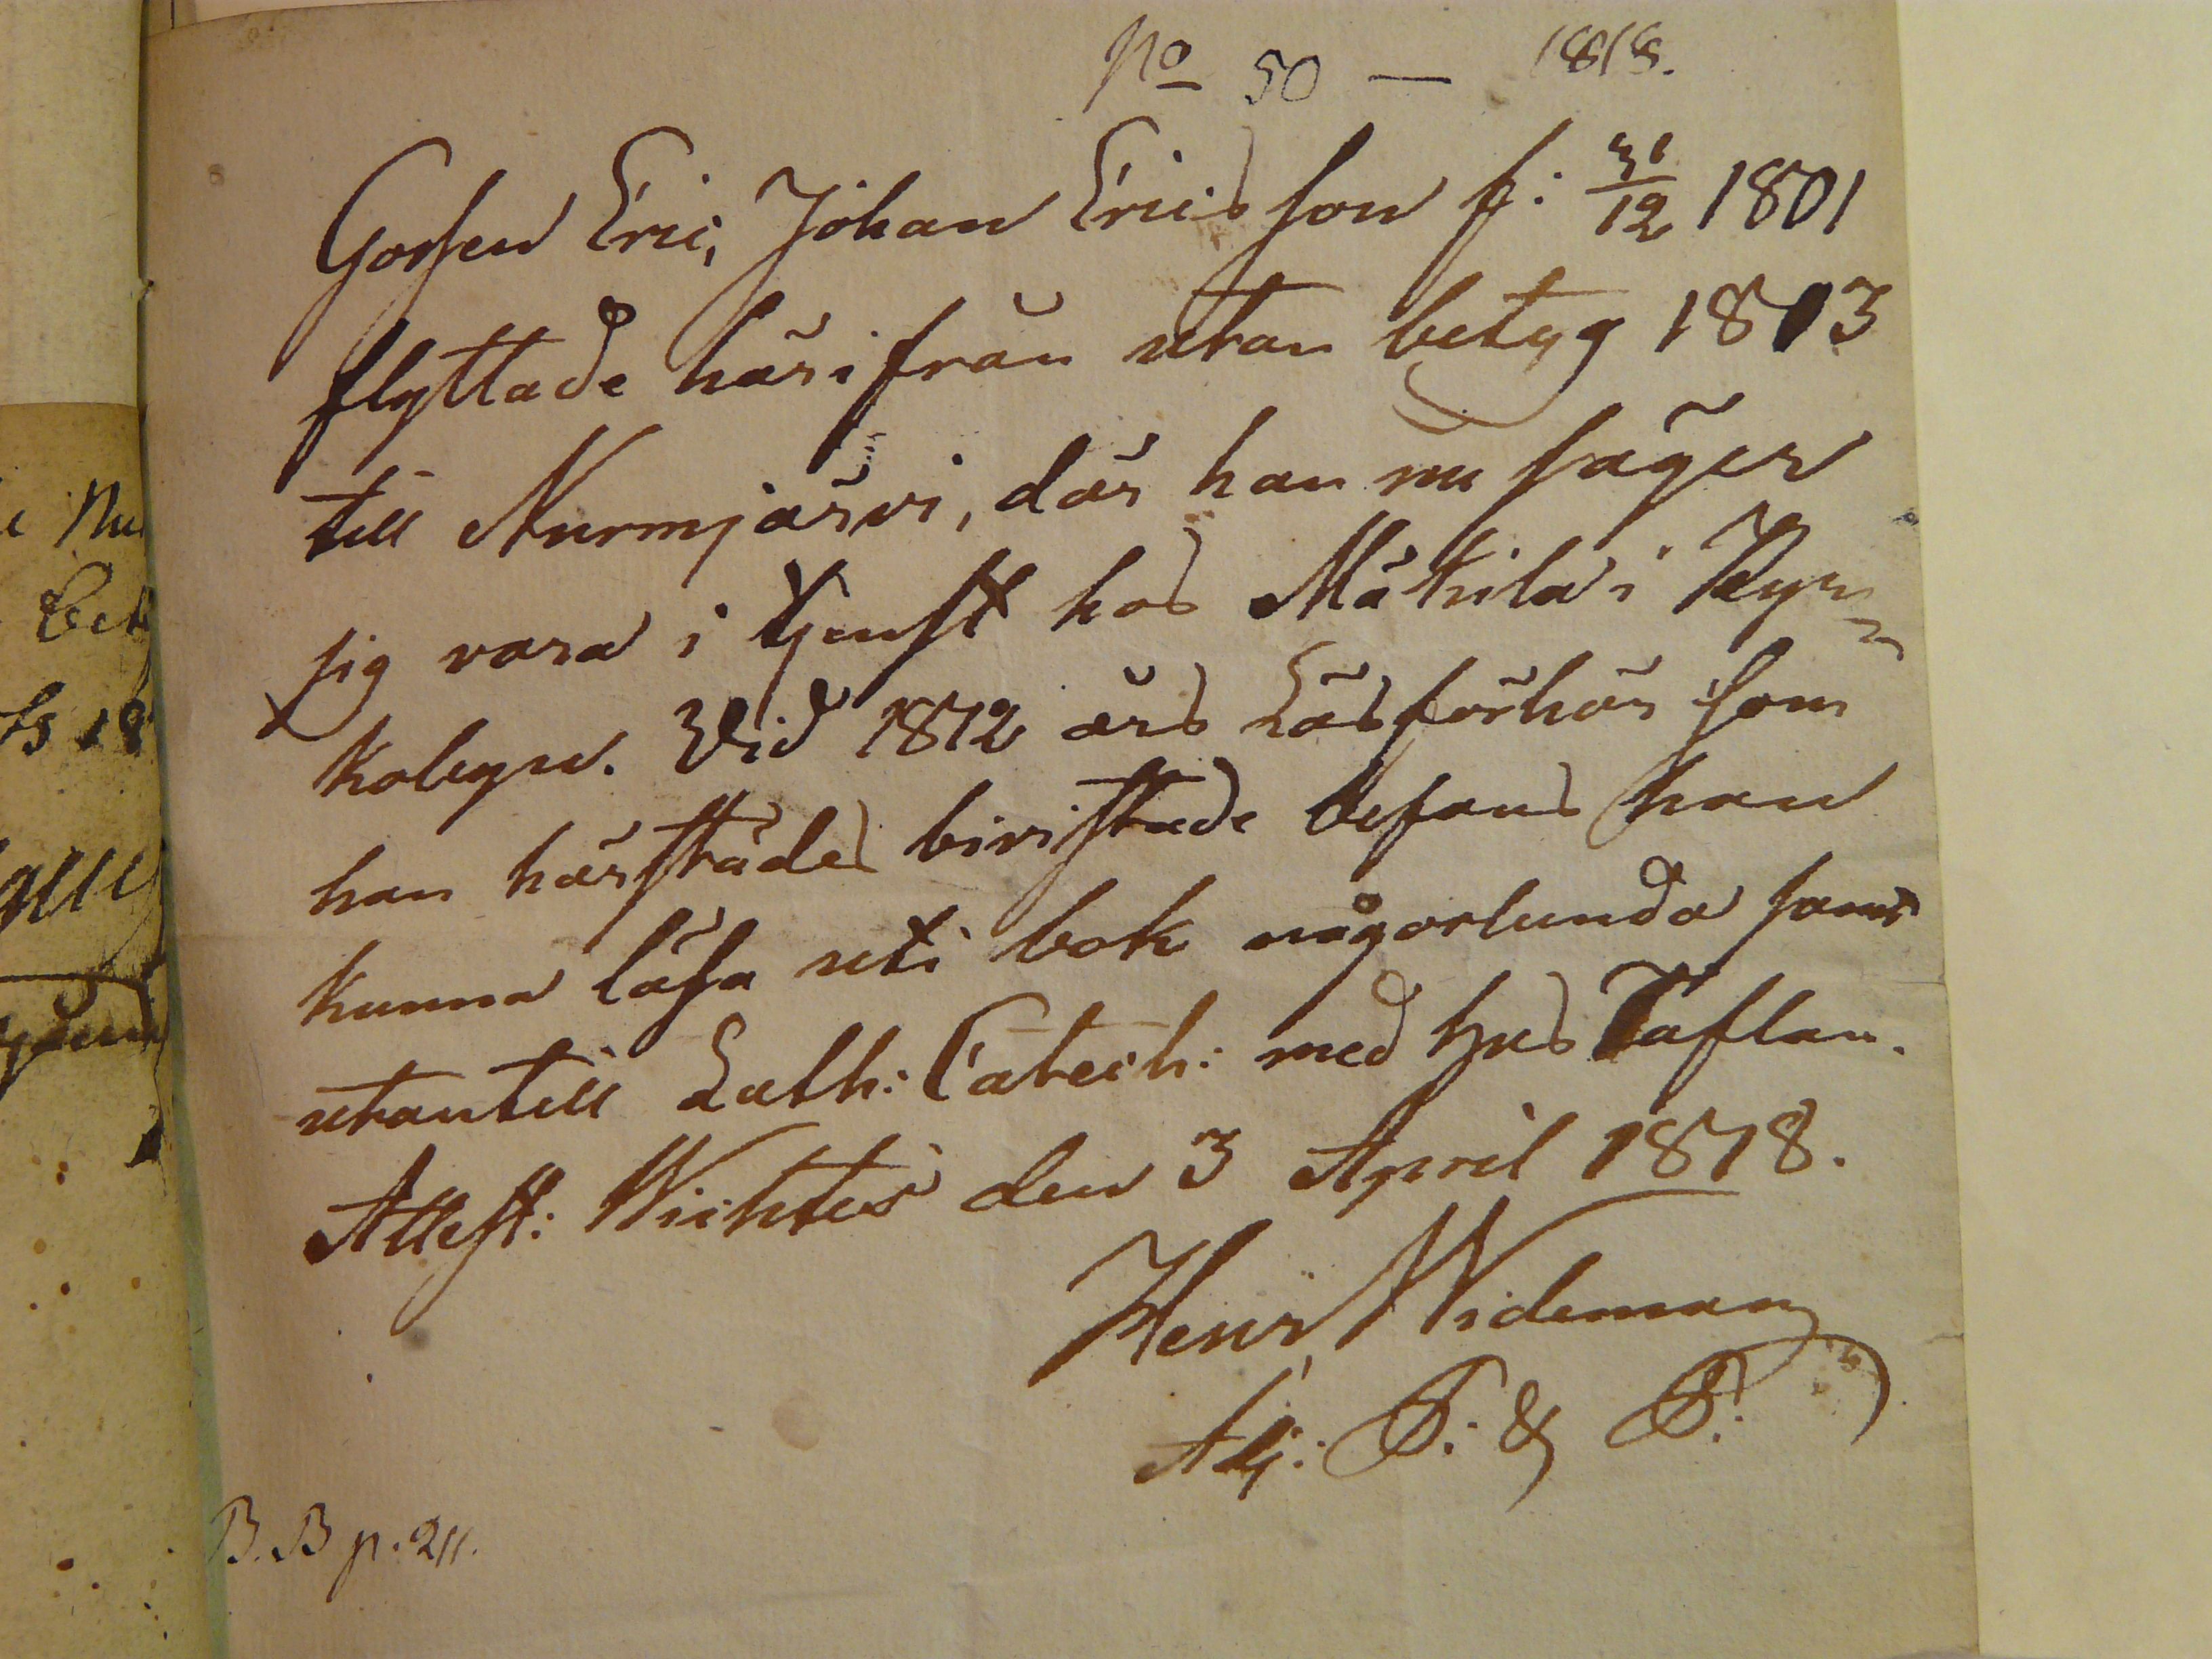 No 50 — 1818.
Gossen Eric, Johan Ericsson f: 31/12 1801
flyttade härifrån utan betyg 1813
till Nurmjärvi, där han nu säger
sig vara i tjenst hos Mäkilä i Kyr=
kobyn. Vid 1812 års Läsförhör som
han härstädes bivistade befans han
kunna läsa uti bok någorlunda samt
utantill Luth: Catech: med hus Taflan.
Attest: Wichtis den 3 April 1818.
Henr Wideman
Adj:
B.B p. 211.